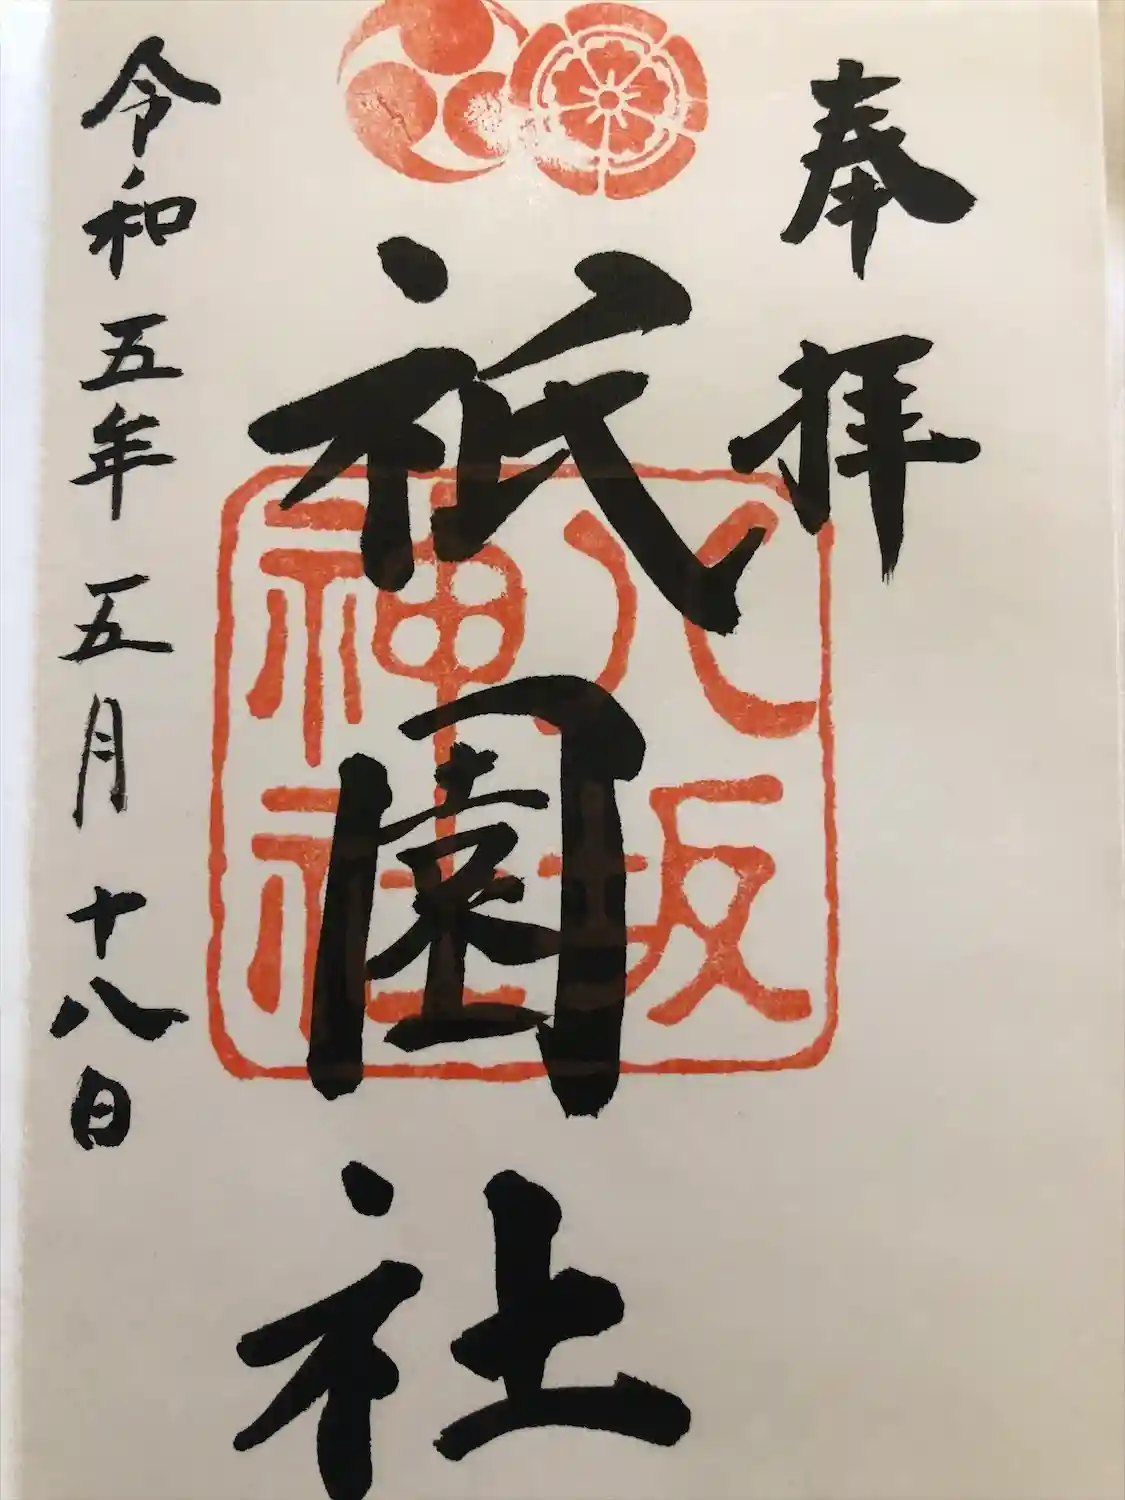 奉拝
祇園社
八坂神社
令和五年五月十八日